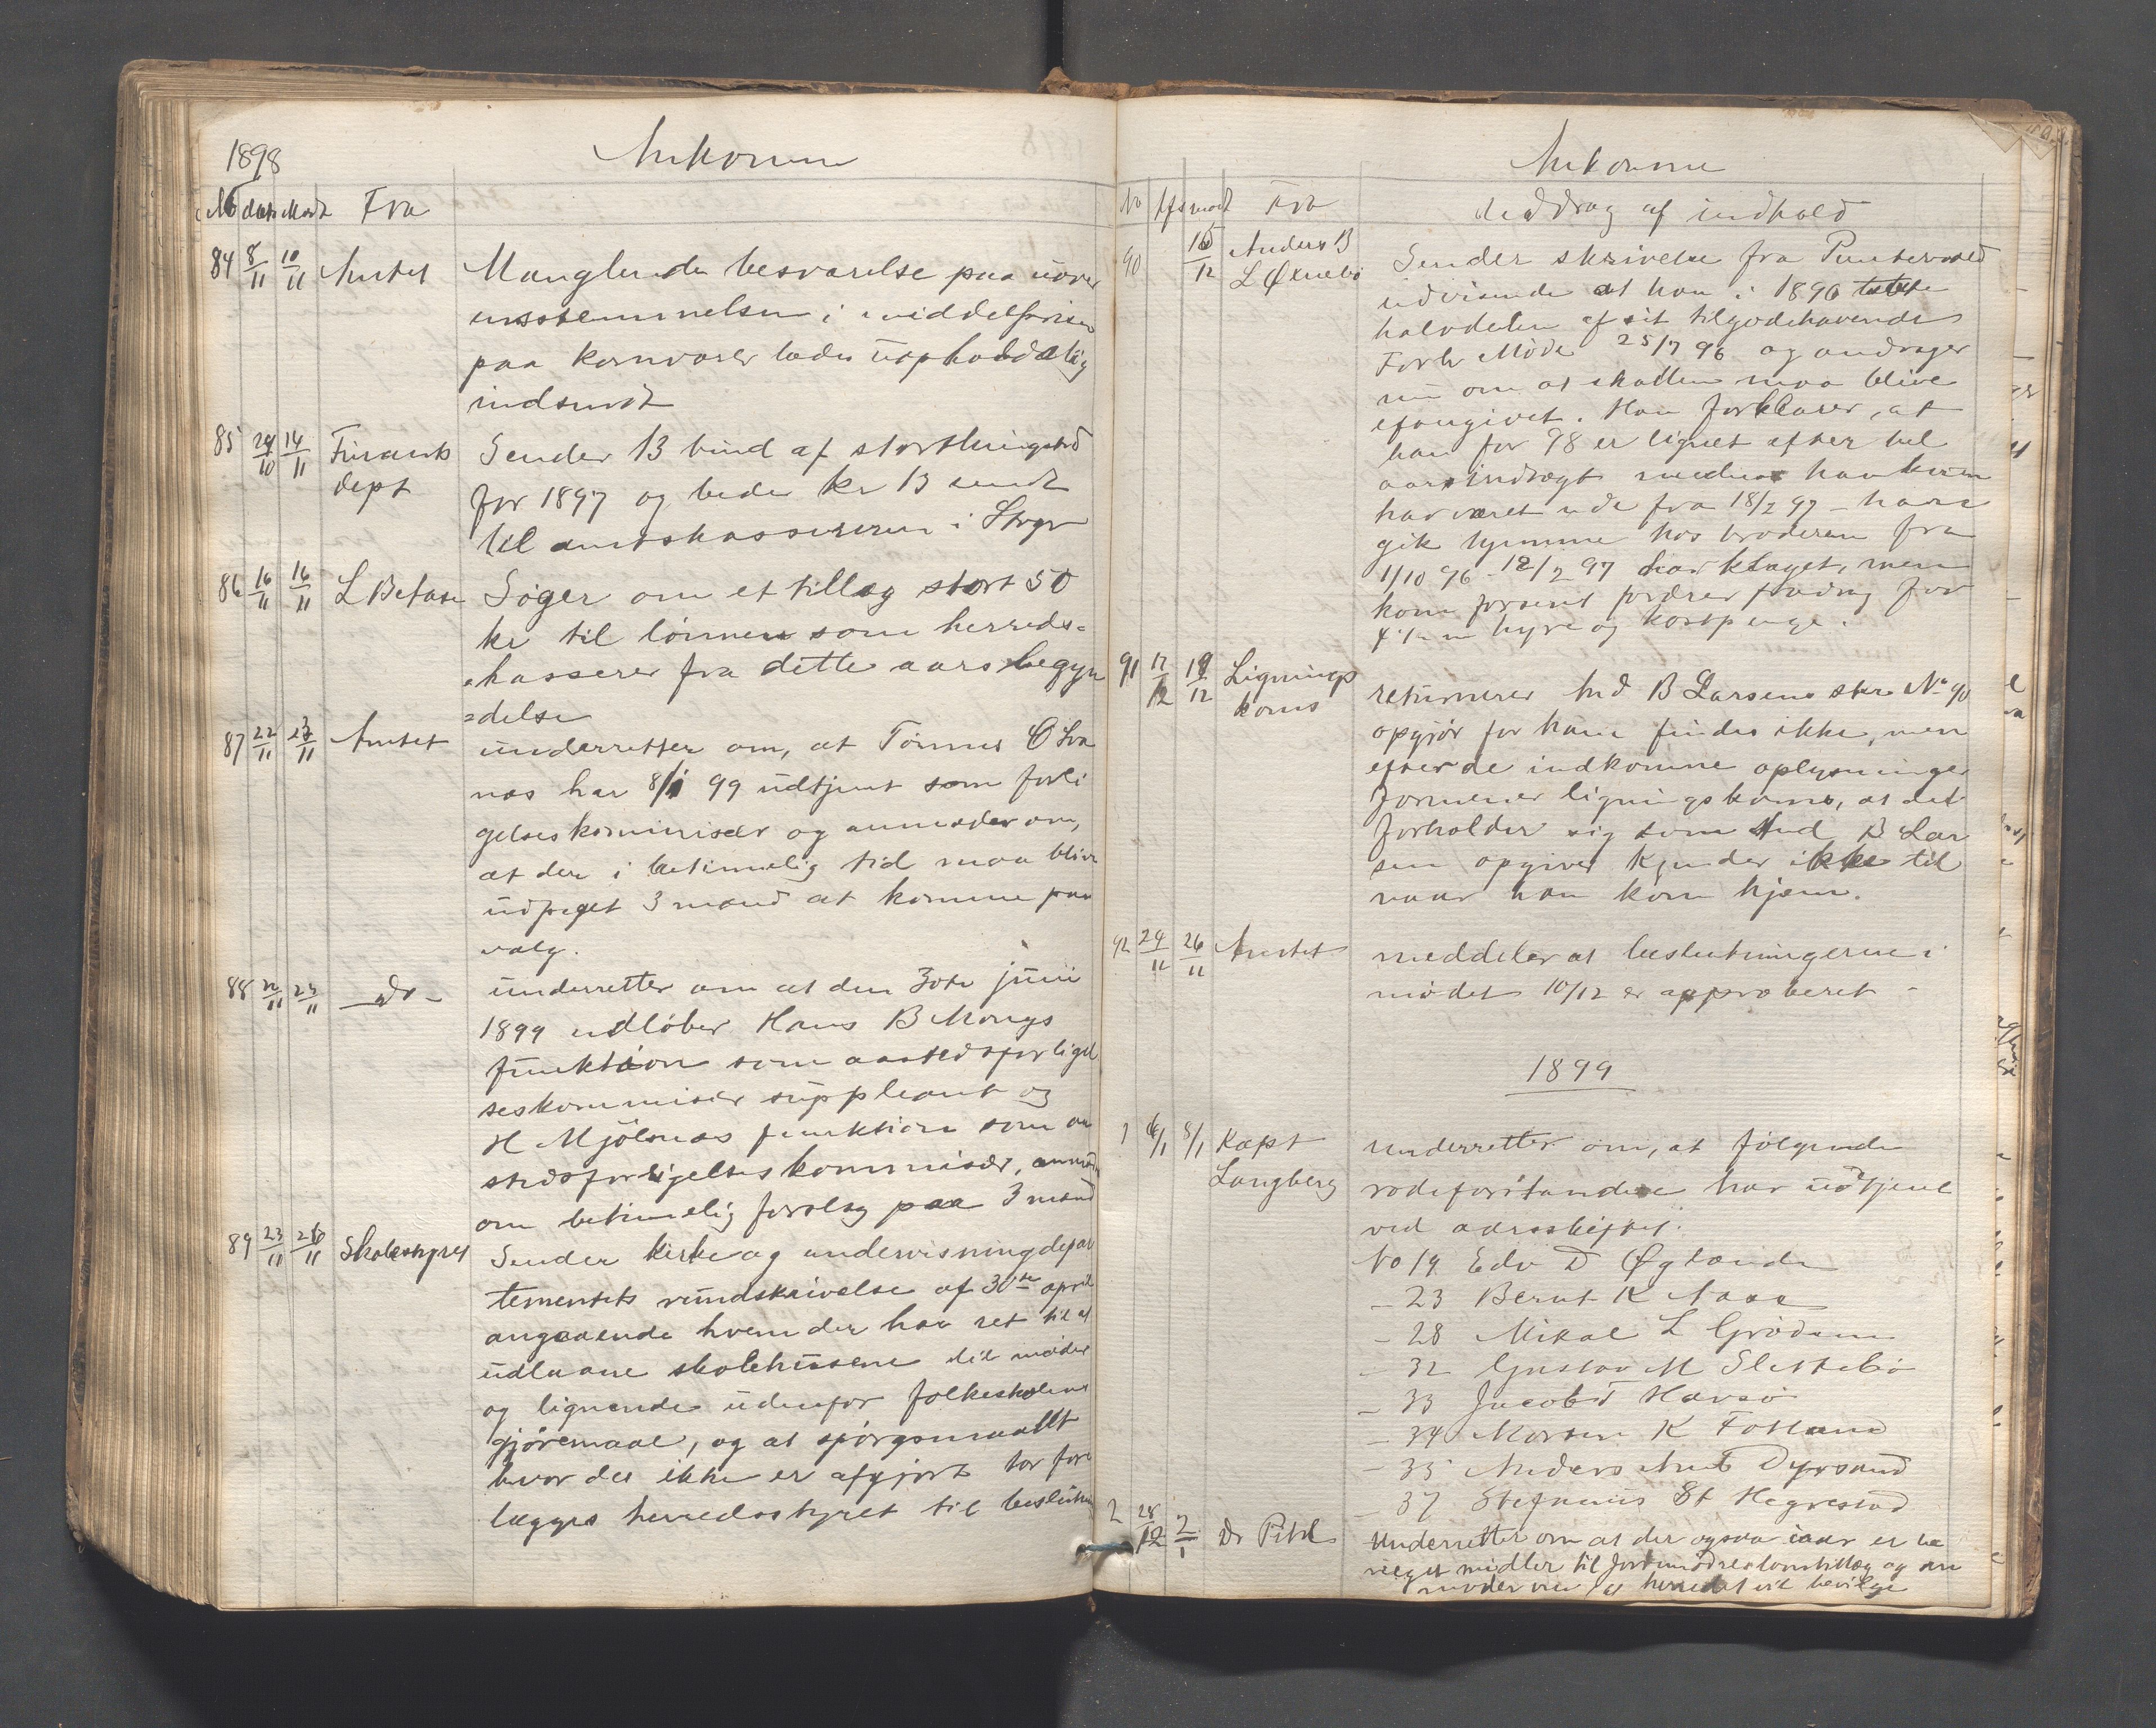 1898
Ankomne
No dat Modt Fra
84 8/11 10/11 Amtet Manglende besvarelse paa uover
ensstemmelsen i middelprisen
paa kornvarer bedes uopholdelig
indsendt
85 24/10 14/11 Finants
dept
Sender 13 bind af storthingstid
for 1897 og beder kr 13 sendt
til amtskassereren i Stvgr
86 16/11 16/11 L Befase Søger om et tillæg stort 50
kr til lønnen som herreds=
=kasserer fra dette aars begyn
=delse
87 22/11 23/11 Amtet underretter om, at Tønnes O Sva
nes har 8/1 99 udtjent som forli
gelseskommisær og anmoder om,
at der i betimelig tid maa blive
udpeget 3 mand at komme paa
valg.
88 22/11 23/11 — do — underretter om at den 30te juni
1899 udløber Hans B Mongs
funktion som aastedsforligel
seskommisær suppleant og
H Mjølsnæs funktion som aa
stedsforligelseskommisær, anmoder
om betimelig forslag paa 3 mand
89 23/11 26/11 Skolestyret Sender kirke og undervisningdepar
tementets rundskrivelse af 30te april
angaaende hvem der har ret til at
udlaane skolehusene til møder
og lignende udenfor folkeskolens
gjøremaal, og at spørgsmaalet
hvor det ikke er afgjort bør fore
lægges herredsstyret til beslutning
Ankomne
No Afs modt Fra Uddrag af indhold
90 15/12 Anders B
L Øxnebø
Sender skrivelse fra Puntervold
udvisende at han i 1896 tabte
halvdelen af sit tilgodehavende
Forlr Møde 25/7 96 og andrager
nu om at skatten maa blive
efangivet. Han forklarer, at
han for 98 er lignet efter hel
aarsindtægt medens han kun
har været ude fra 18/2 97 – han
gik hjemme hos broderen fra
1/10 96 – 18/2 97 har klaget, men
kom forsent fordrer fradrag for
4 1/2 m hyre og kostpenge.
91 17/12 19/12 Lignings
koms
returnerer And B Larsens skr No 90
opgjør for ham findes ikke, men
efter de indkomne oplysninger
formener ligningskoms, at det
forholder sig som And B Lar
sen opgiver kjender ikke til
naar han kom hjem.
92 24/11 26/11 Amtet meddeler at beslutningerne i
mødet 10/12 er approberet –
1899
1 6/1 8/1 Kapt
Langberg
underretter om, at følgende
rodeforstandere har udtjent
ved aarsskiftet:
No 19 Edv D Øglænd
– 23 Bernt K Aase
– 28 Mikal L Grødem
– 32 Gustav M Slettebø
– 33 Jacob T Havsø
– 34 Morten K Fotland
– 35 Anders And Dyrsand
– 37 Stefanus St Hegrestad
2 28/12 2/1 Dr Pihl Underretter om at der ogsaa iaar er be
vilget midler til jordmødres lønstillæg og an
moder om at herredet vil bevilge